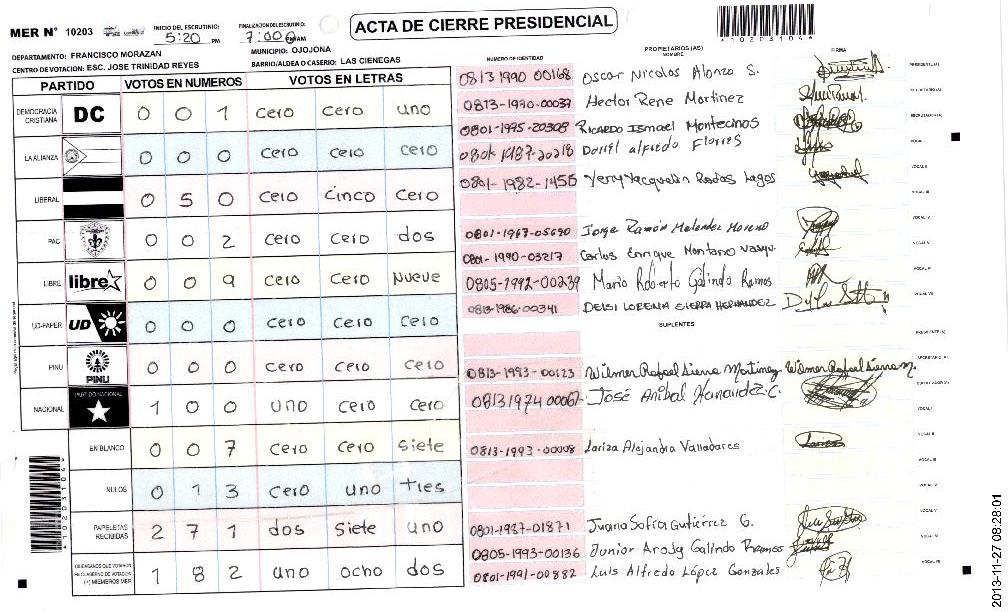 MER N° 10203
INICIO DEL ESCRUTINIO: 5:20 PM
FINALIZACION DEL ESCRUTINIO: 7:00 PM/AM
ACTA DE CIERRE PRESIDENCIAL
*10203104*
DEPARTAMENTO: FRANCISCO MORAZAN
MUNICIPIO: OJOJONA
CENTRO DE VOTACION: ESC. JOSE TRINIDAD REYES
BARRIO/ALDEA O CASERIO: LAS CIENEGAS
PARTIDO VOTOS EN NUMEROS VOTOS EN LETRAS
DEMOCRACIA CRISTIANA DC 0 0 1 cero cero uno
LA ALIANZA 0 0 0 cero cero cero
LIBERAL 0 5 0 cero cinco cero
PAC 0 0 2 cero cero dos
LIBRE libre 0 0 9 cero cero Nueve
UD-FAPER UD 0 0 0 cero cero cero
PINU PINU 0 0 0 cero cero cero
NACIONAL PARTIDO NACIONAL 1 0 0 uno cero cero
EN BLANCO 0 0 7 cero cero siete
NULOS 0 1 3 cero uno tres
PAPELETAS RECIBIDAS 2 7 1 dos siete uno
CIUDADANOS QUE VOTARON EN CUADERNO DE VOTACION (+) MIEMBROS MER 1 8 2 uno ocho dos
*10203104*
NUMERO DE IDENTIDAD PROPIETARIOS (AS) NOMBRE FIRMA
0813 1990 00168 Oscar Nicolas Alonzo S. PRESIDENTE (A)
0813-1990-00039 Hector Rene Martinez SECRETARIO (A)
0801-1995-20308 RICARDO ISmael Montecinos ESCRUTADOR (A)
0801-1987-20218 Dorriel alfredo Flores VOCAL I
0801-1982-1455 Yeny Jacquelin Rodas Lagos VOCAL II
VOCAL III
0801-1967-05690 Jorge Ramón Melendez Moreno VOCAL IV
0801-1990-03217 Carlos Enrique Montano Vasqu. VOCAL V
0805-1992-00239 Mario Roberto Galindo Ramos VOCAL VI
0813-1986-00341 DELSI LORENIA SIERRA HERNANDEZ VOCAL VII
SUPLENTES
PRESIDENTE (A)
0813-1993-00123 Wilmer Rafael Sierra Martinez Wilmer Rafael Sierra M. SECRETARIO (A)
0813 1974 00067 José Anibal Hernandez C. ESCRUTADOR (A)
VOCAL I
0813-1993-00008 Lariza Alejandra Valladares VOCAL II
VOCAL III
VOCAL IV
0801-1987-01871 Juana Sofía Gutiérrez G. VOCAL V
0805-1993-00136 Junior Arody Galindo Ramos VOCAL VI
0801-1991-00882 Luis Alfredo López Gonzales VOCAL VII
2013-11-27 08:28:01